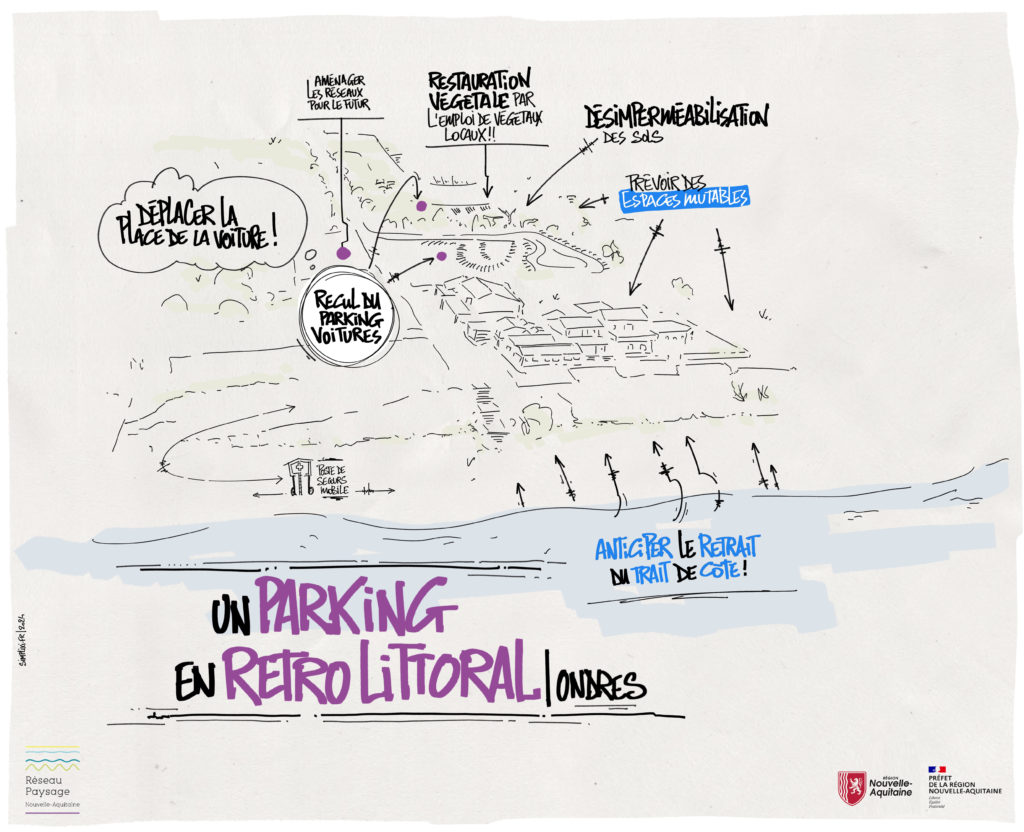 AMÉNAGER
LES RÉSEAUX
POUR LE FUTUR
RESTAURATION
VÉGÉTALE PAR
L'EMPLOI DE VÉGÉTAUX
LOCAUX!!
DÉSIMPERMÉABILISATION
DES SOLS
PRÉVOIR DES
ESPACES MUTABLES
DÉPLACER LA
PLACE DE LA VOITURE !
RECUL DU
PARKING
VOITURES
POSTE DE
SECOURS
MOBILE
ANTICIPER LE RETRAIT
DU TRAIT DE CÔTE !
UN PARKING
EN RETRO LITTORAL | ONDRES
Réseau
Paysage
Nouvelle-Aquitaine
RÉGION
Nouvelle-
Aquitaine
PRÉFET
DE LA RÉGION
NOUVELLE-AQUITAINE
Liberté
Égalité
Fraternité